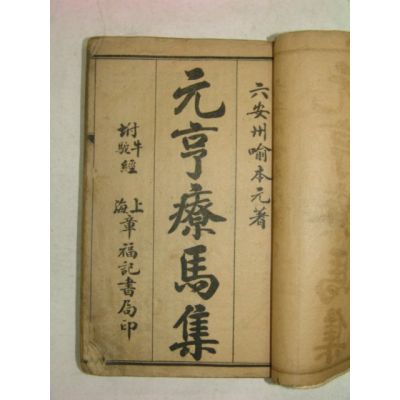 六安州喻本元著
元亨療馬集
附牛駝經
上海章福記書局印